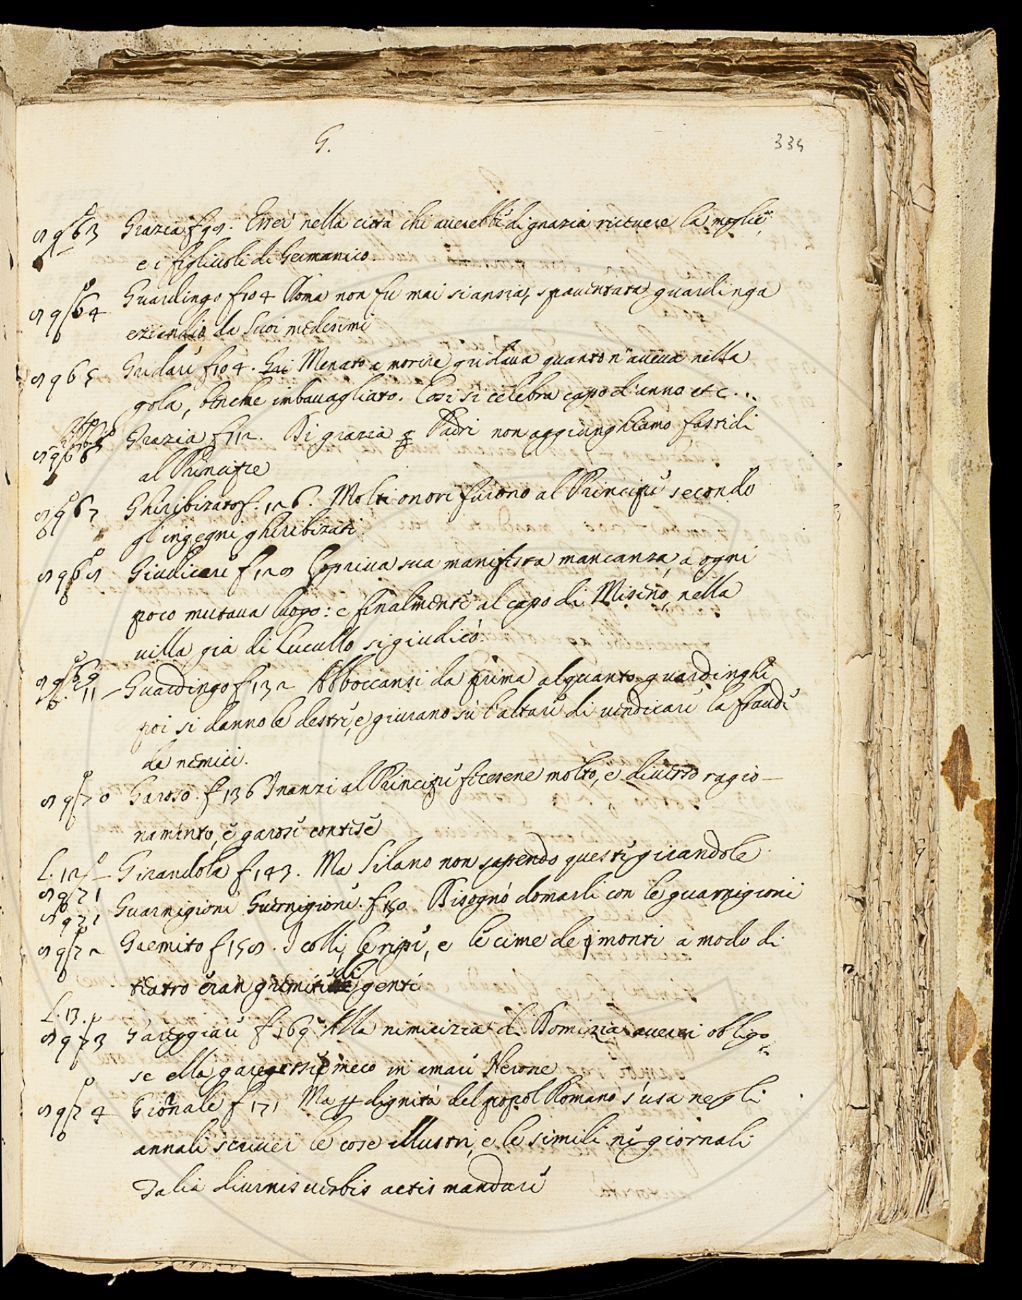 G.
335
Grazia f 99. Eravi nella città chi averebbe di grazia ricevere la moglie,
e i figliuoli di Germanico
Guardingo f 104 Roma non fu mai sì ansia, spaventata, guardinga
eziandio da suoi medesimi
Gridare f 104. Menato a morire gridava quanto n'aveva nella
gola, benche imbavagliato. Così si celebra capo d'anno etc...
Grazia f 12. Di grazia Padri non aggiunghiamo fastidi
al Principe
Ghiribizato f. 126. Molti onori furono al Principe secondo
gl'ingegni ghiribizati
Giudicare f 129 Copriva sua manifesta mancanza, a ogni
poco mutava luogo: e finalmente al capo di Miseno, nella
villa già di Lucullo si giudicò.
11 Guardingo f 132 Abboccansi da prima alquanto guardinghi
poi si danno le destre, e giurano sù l'altare di vendicare la fraude
de nemici.
Garoso. f 136 Inanzi al Principe fecesene molto, e diverso ragio-
namento, e garose contese
L. 12 Girandola f 143. Ma Silano non sapendo queste girandole
Guarnigione Guernigione. f 150 Bisognò domarli con le guarnigioni
Gremito f 159. I colli, le ripe, e le cime de monti a modo di
teatro eran gremite di gente
L. 13. Gareggiare f 169 Alla nimicizia di Domizia averei obligo,
se ella gareggiasse meco in amare Nerone
Giornale f 171 Ma dignità del popol Romano s'usa negli
annali scriver le cose illustri, e le simili ne giornali
Talia diurnis urbis actis mandare